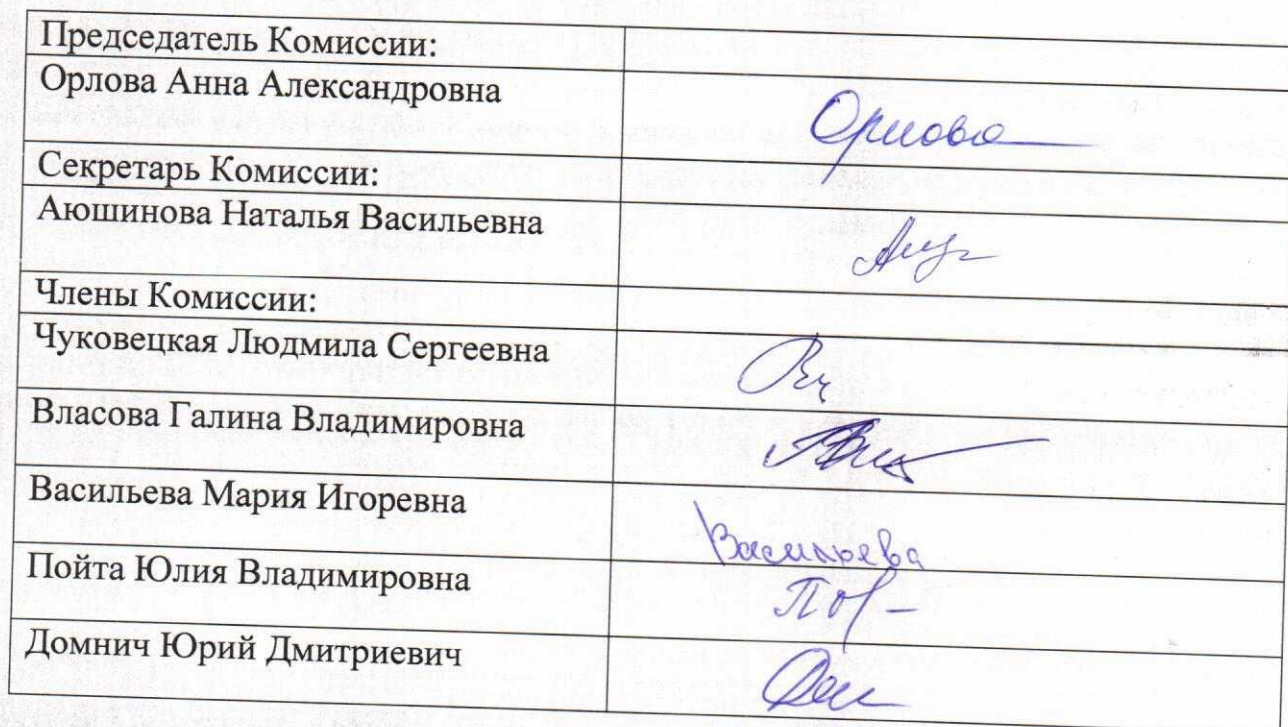 Председатель Комиссии:
Орлова Анна Александровна
Орлова
Секретарь Комиссии:
Аюшинова Наталья Васильевна
Члены Комиссии:
Чуковецкая Людмила Сергеевна
Власова Галина Владимировна
Васильева Мария Игоревна
Васильева
Пойта Юлия Владимировна
Домнич Юрий Дмитриевич